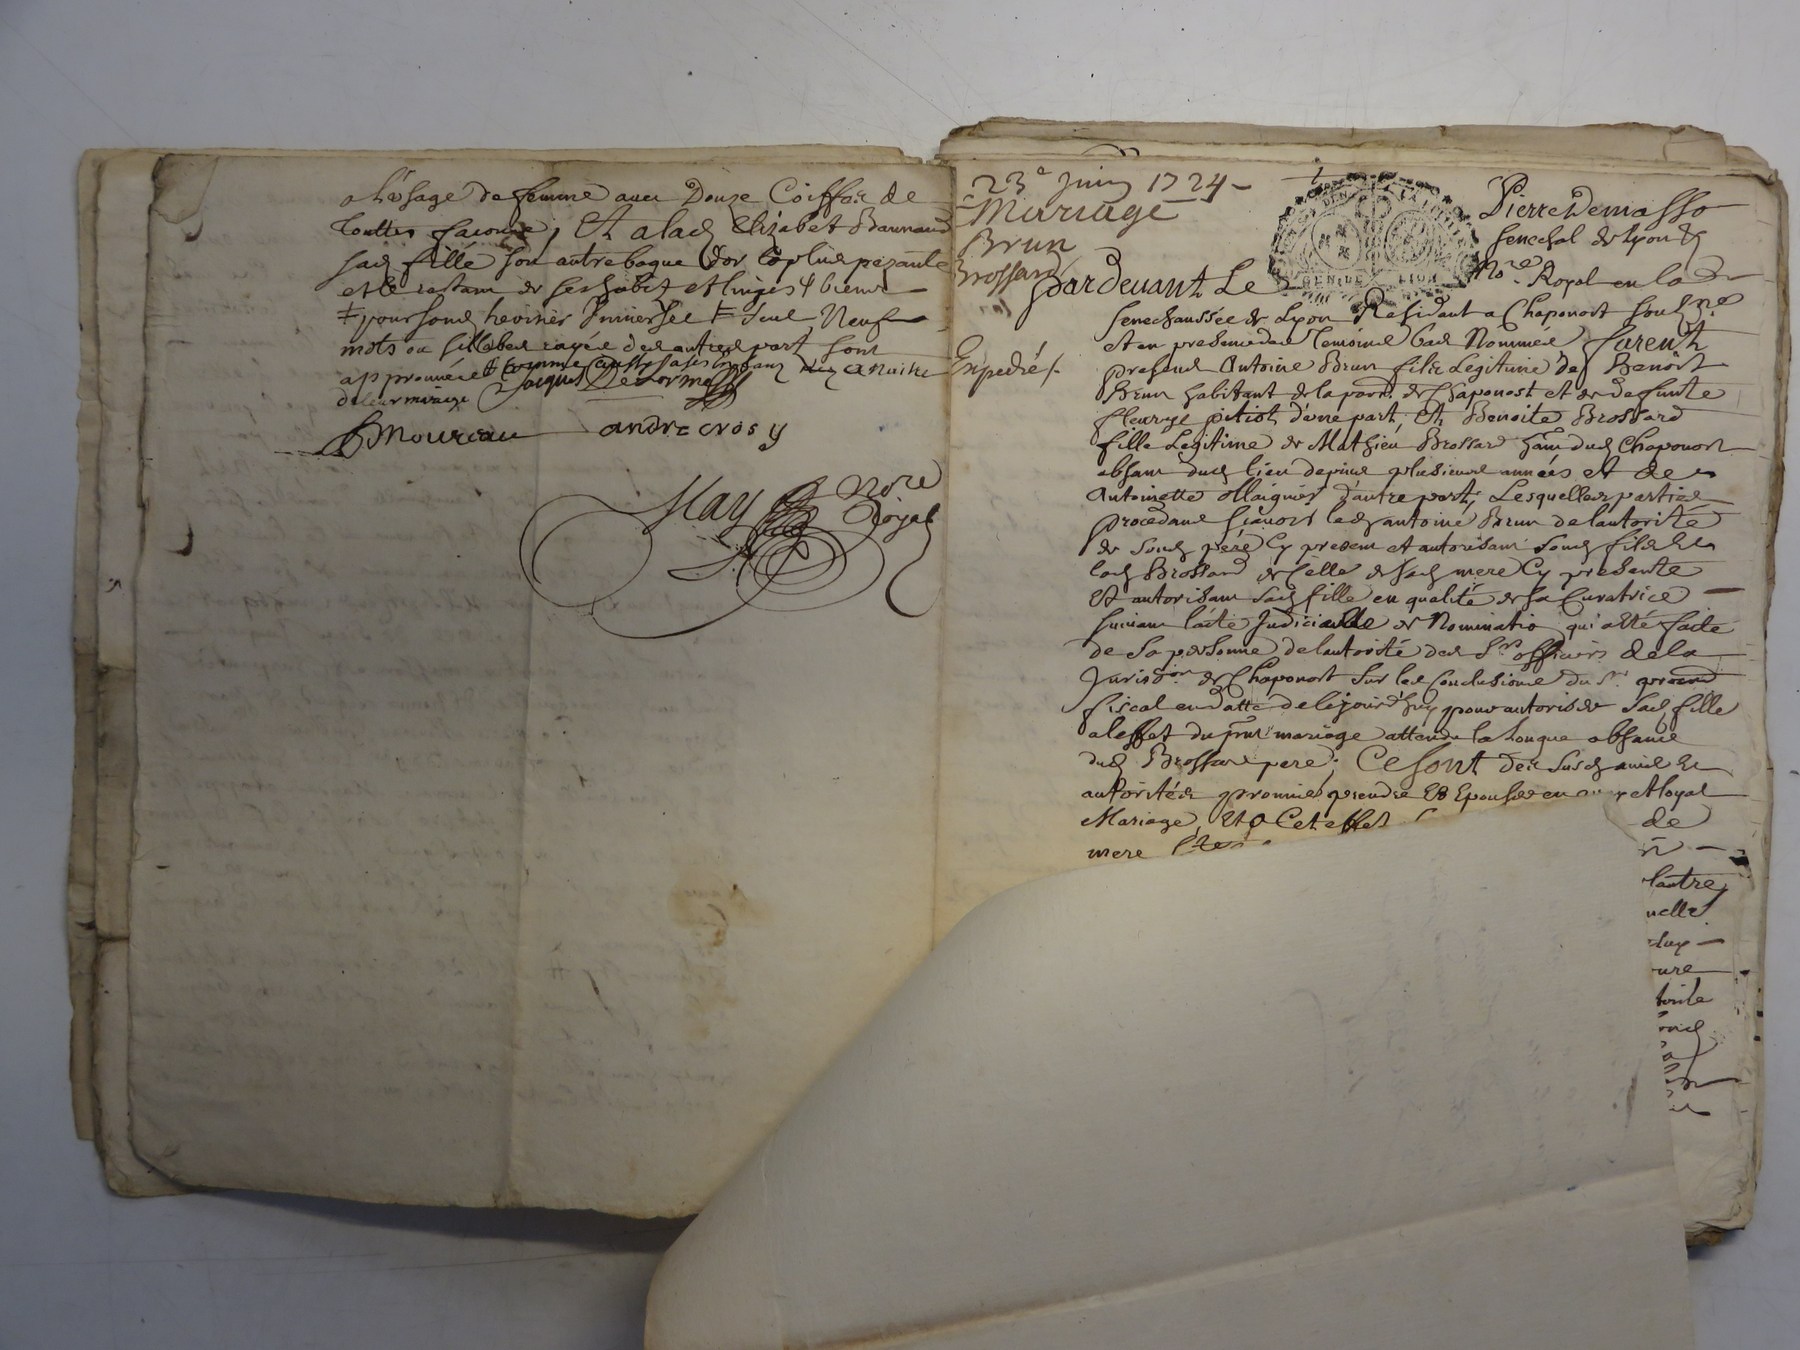 a lusage de femme avec Douze Coiffes de
touttes facons, Et a lad Elizabet Bannaud
sad fille son autre bague d'or la plus pezante
et le restant de ses habit et linges & biens
pour sond heritier Universel Seul Neuf
mots ou sillabes rayés des autres part sont
approuvées comme aussy a naitre
de leur mariage Jacques Delorme
Moureau andre crosy
May No.re Royal
23e Juin 1724
Mariage
Brun
Brossard
Expedié
GENE DE LION
Pierre Demasso
senechal de Lyon
Pardevant Le No.re Royal en la
senechaussée de Lyon Residant a Chaponost souz.né
et en presence des temoins bas Nommés furent
presents Antoine Brun fils Legitime de Benoist
Brun habitant de la parr. de Chaponost et de defunte
fleurye pitiot d'une part, Et Benoite Brossard
fille Legitime de Mathieu Brossard dud Chaponost
absant dud lieu depuis plusieurs années et de
Antoinette Maignier d'autre part, Lesquelles parties
procedant sçavoir led antoine Brun de lautorité
de sond pere Cy present et autorisant sond fils Et
lad Brossard de Celle de sad mere Cy presente
Et autorisant sad fille en qualité de sa Curatrice
suivant lacte Judicialle de Nominatio qui a été faite
de sa personne de lautorité des Srs officiers de la
Jurisd.on de Chaponost sur les Conclusions du Sr. procur
fiscal en datte de Cejourdhuy pour autoriser sad fille
a leffet du pnt mariage attendu la longue absance
dud Brossard pere; Ce sont des susd avis Et
autorités promis prendre Et Epouser en et loyal
Mariage, Et a Cet effet de
mere
lautre
uelle
ure
torité